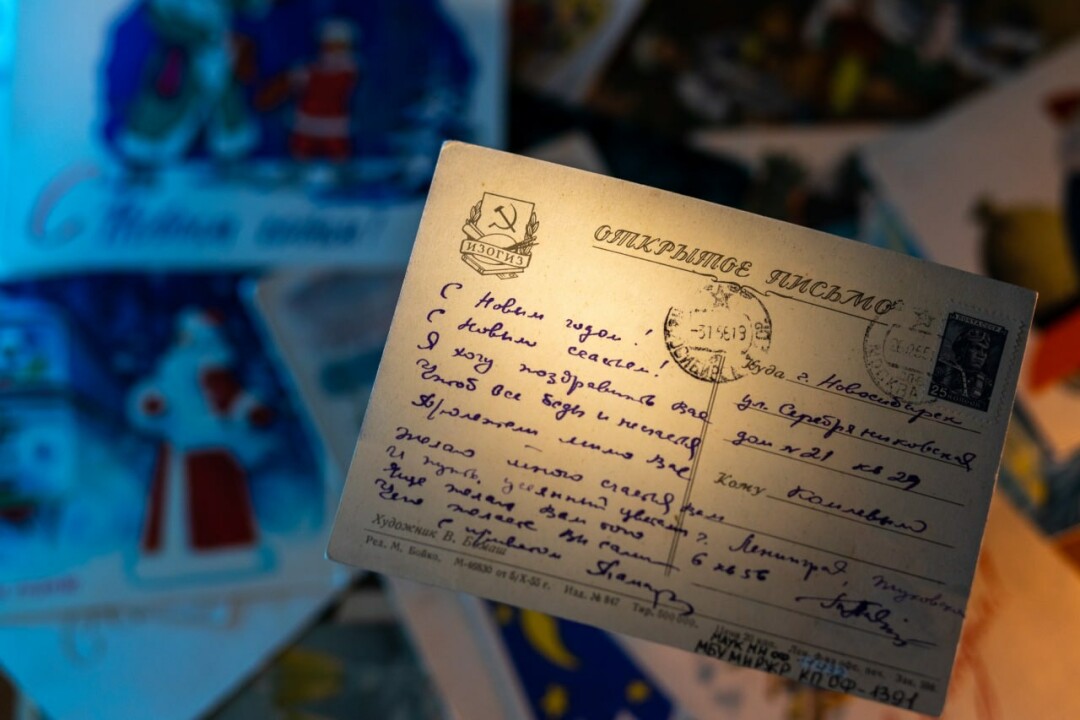 С Новым годом!
ИЗОГИЗ
ОТКРЫТОЕ ПИСЬМО
С Новым годом!
С Новым счастьем!
Я хочу поздравить Вас
Чтоб все беды и несчастья
Пролетели мимо Вас
Желаю много счастья Вам
И путь, усеянный цветам
Еще желаю Вам того
Чего желаете Вы сами
С приветом
Куда г. Новосибирск
ул. Серебряниковская
дом №21 кв 29
Кому
г. Ленинград,
25
Художник В.
Ред. М. Бойко. М-46830 от 5/X-55 г. Изд. № 847 Тир. 500.000.
МБУ МИРЖР КП ОФ-1391